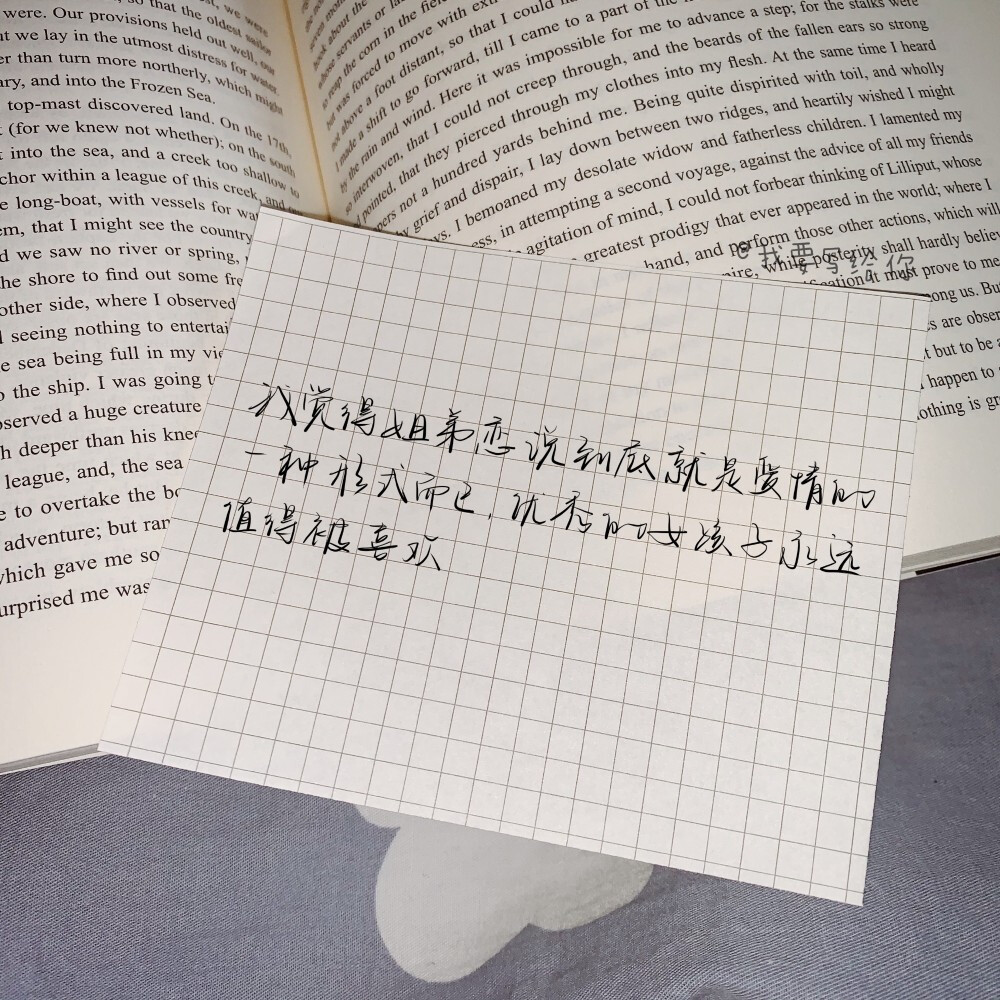 were. Our provisions held out well, our
t we lay in the utmost distress for water.
er than turn more northerly, which might
ary, and into the Frozen Sea.
top-mast discovered land. On the 17th
(for we knew not whether); on the south
into the sea, and a creek too shallow to
chor within a league of this creek, and
e long-boat, with vessels for wa
em, that I might see the country
d we saw no river or spring,
the shore to find out some fre
other side, where I observed
seeing nothing to entertai
e sea being full in my vie
o the ship. I was going t
bserved a huge creature
h deeper than his kne
league, and, the sea
e to overtake the bo
adventure; but ran
which gave me so
urprised me was
was forced to move with ext
not above a foot distant, so that I could h
made a shift to go forward, till I came to a part of the
by the rain and wind. Here it was impossible for me to advance a step; for the stalks were
interwoven, that I could not creep through, and the beards of the fallen ears so strong
pointed, that they pierced through my clothes into my flesh. At the same time I heard
pers not a hundred yards behind me. Being quite dispirited with toil, and wholly
y grief and despair, I lay down between two ridges, and heartily wished I might
ys. I bemoaned my desolate widow and fatherless children. I lamented my
ess, in attempting a second voyage, against the advice of all my friends
agitation of mind, I could not forbear thinking of Lilliput, whose
greatest prodigy that ever appeared in the world; where I
hand, and perform those other actions, which will
ire, while posterity shall hardly believ
ification it must prove to me
ong us. But
s are obser
t but to be a
happen to
othing is gr
@我要写给你
我觉得姐弟恋说到底就是爱情的
一种形式而已,优秀的女孩子永远
值得被喜欢